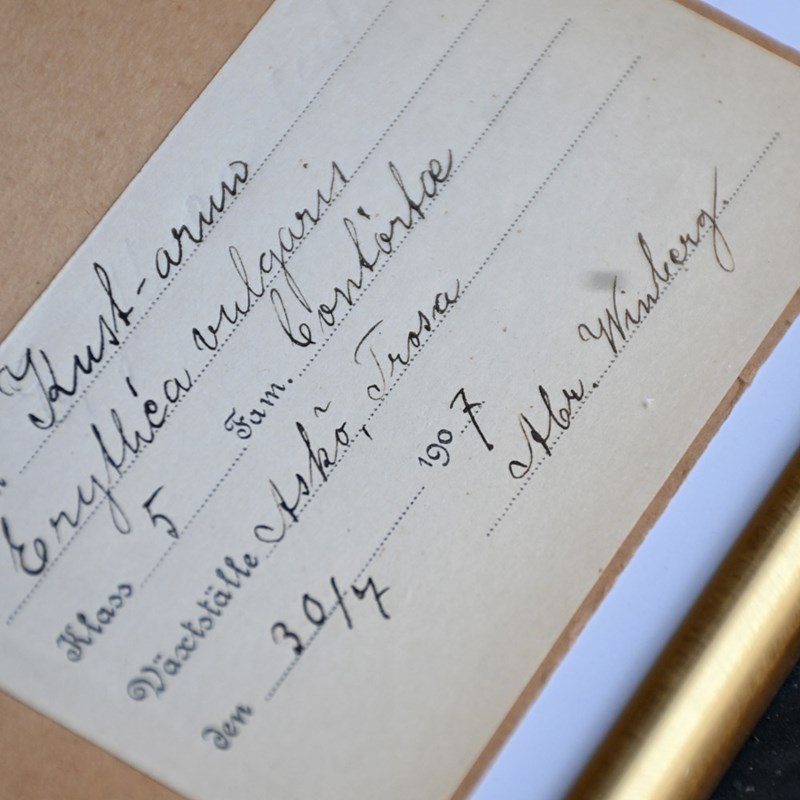 Kust-arun
Erythéa vulgaris
Klass 5 Fam. Contortæ
Växtställe Askö, Trosa
den 30/7 1907
Abr. Winberg.